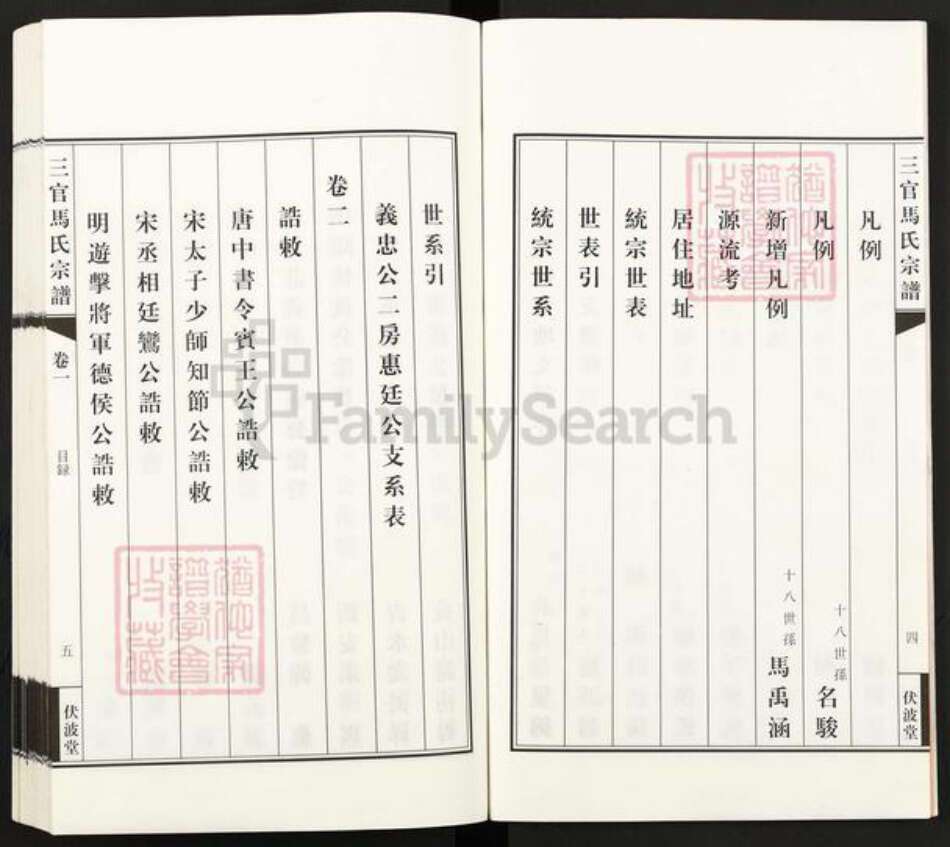 三官馬氏宗譜
四
伏波堂
凡例
凡例 十八世孫 名駿
新增凡例 十八世孫 馬禹涵
源流考
居住地址
統宗世表
世表引
統宗世系
世系引
義忠公二房惠廷公支系表
卷二
誥敕
唐中書令賓王公誥敕
宋太子少師知節公誥敕
宋丞相廷鸞公誥敕
明遊擊將軍德侯公誥敕
三官馬氏宗譜
卷一
目録
五
伏波堂
FamilySearch